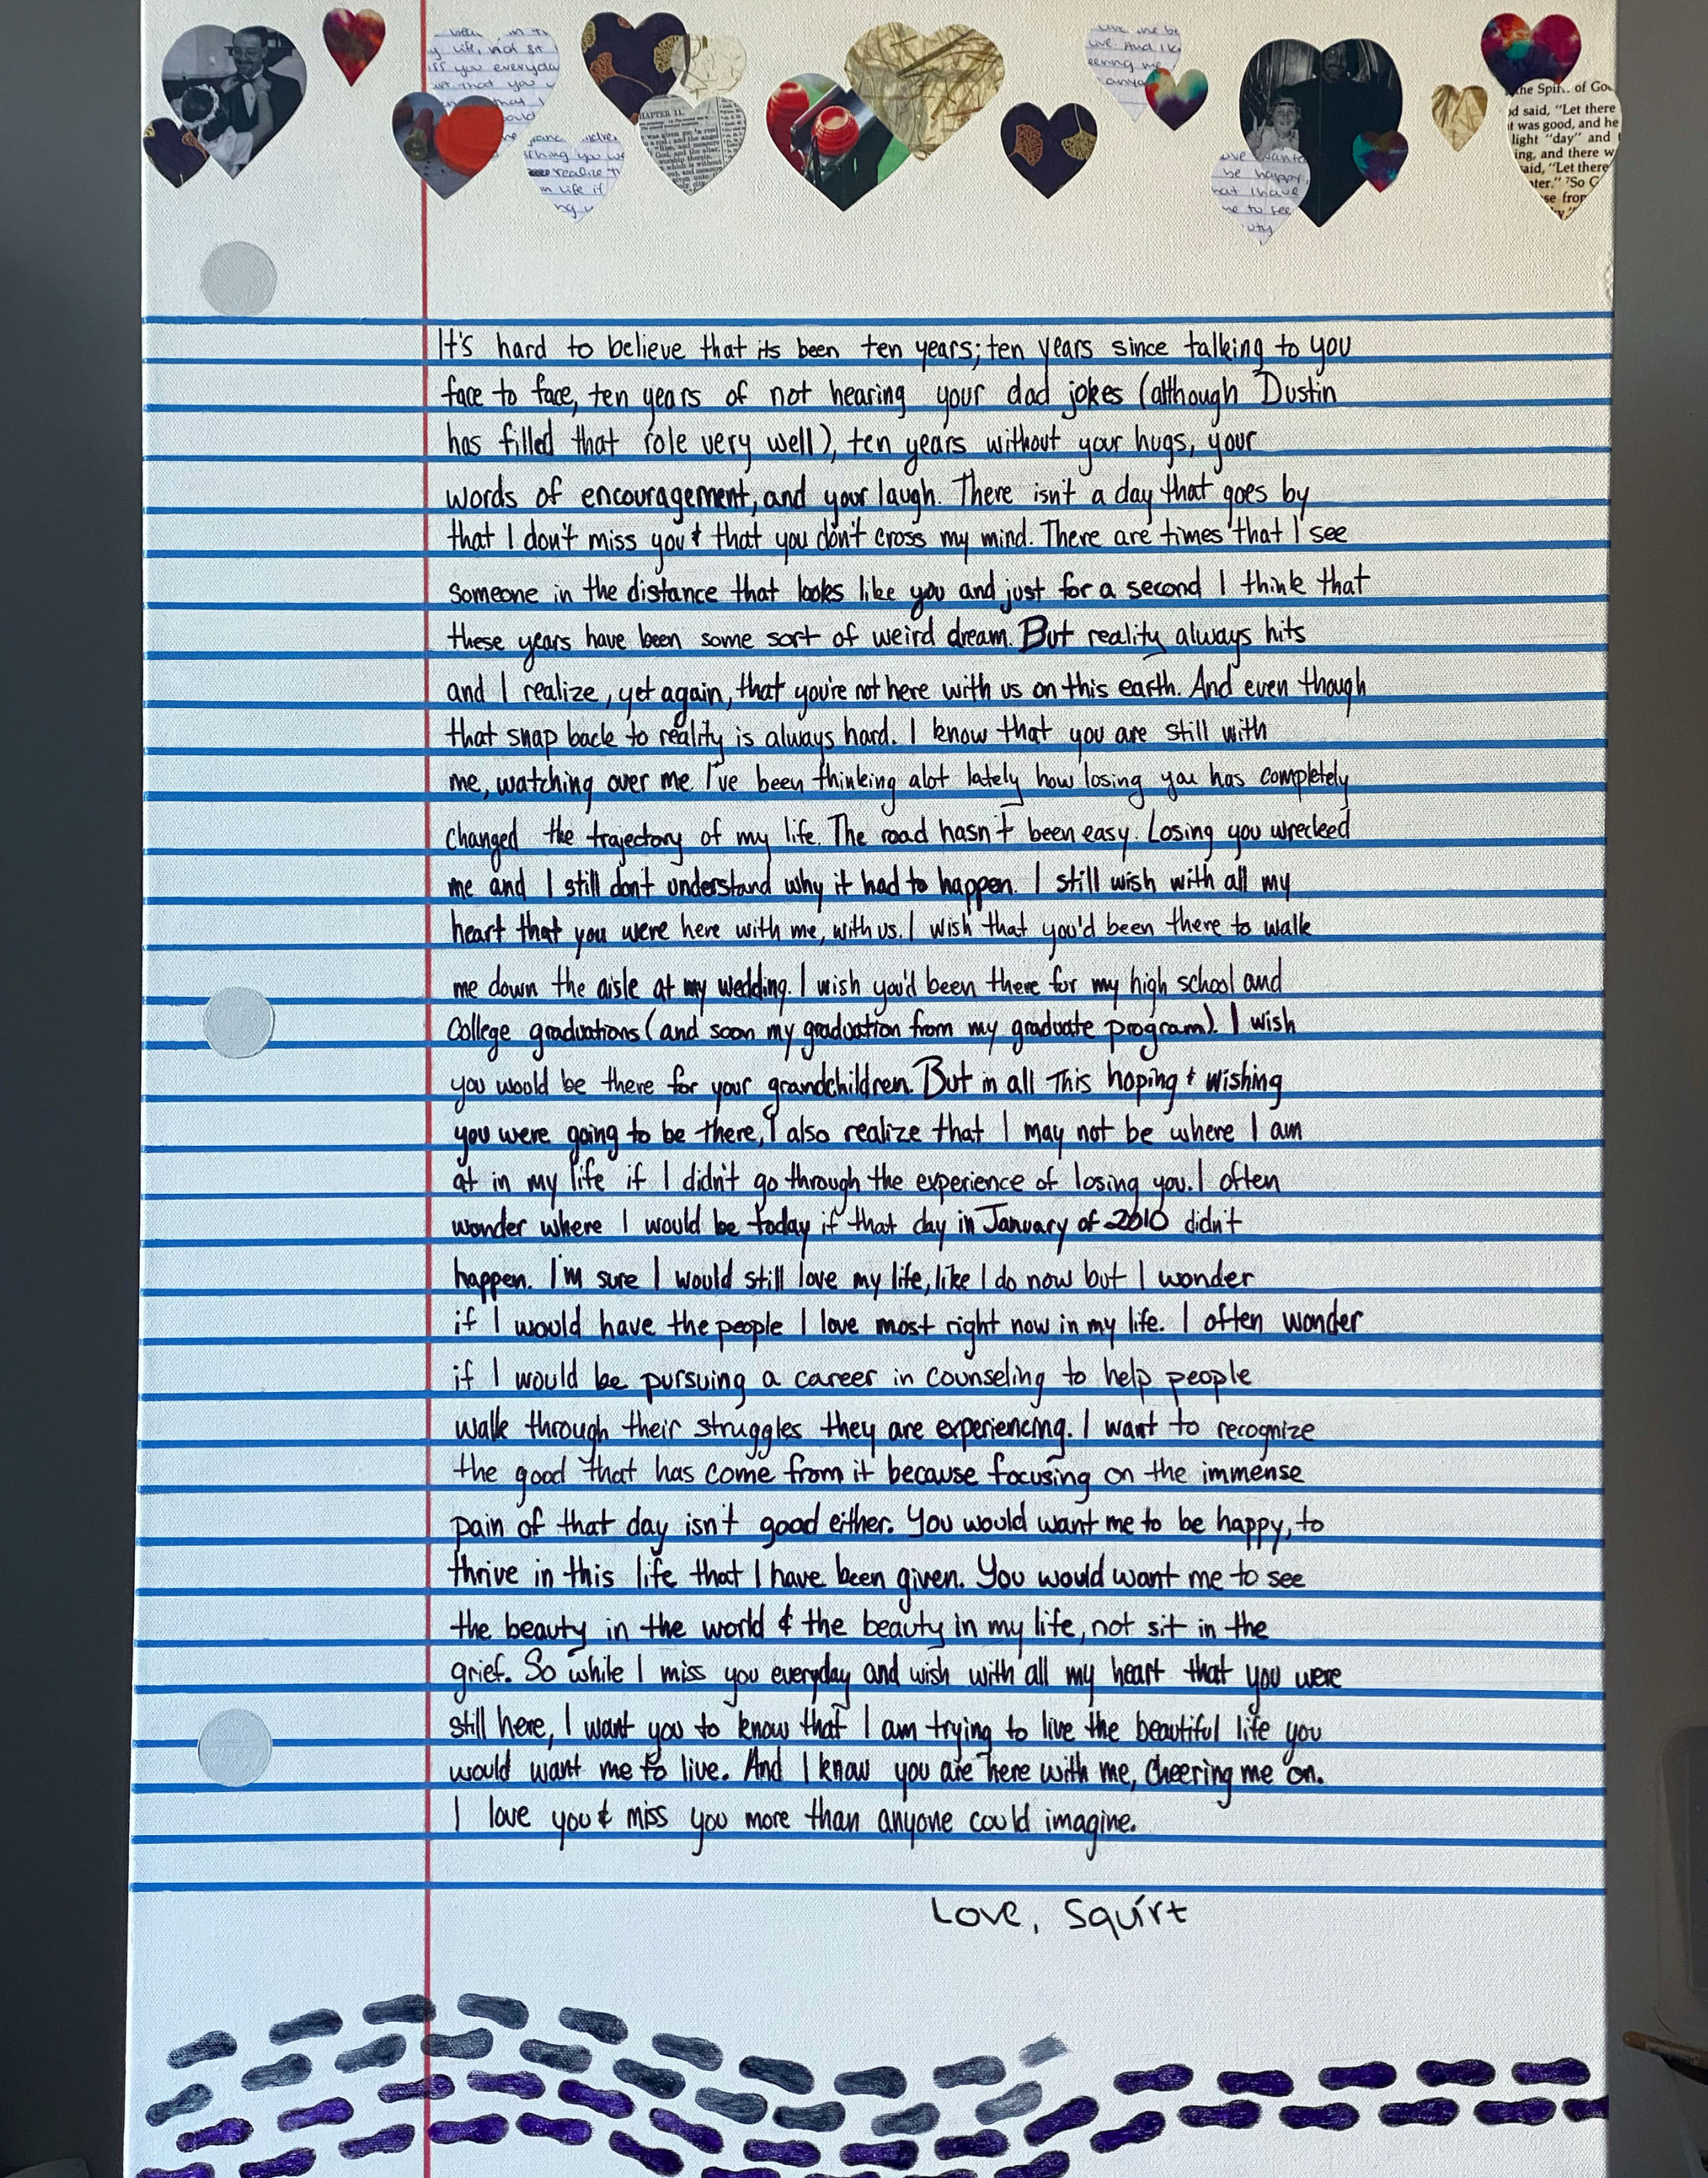 y life, not sit
iss you everyday
that you
that I
ould
you
realize
in life if
ng
HAPTER 11.
live me be
live. And I k
eering me
anyo
live wante
be happy,
hat I have
me to see
uty
he Spir of Go
d said, "Let there
t was good, and he
light "day" and
ing, and there w
aid, "Let there
ter." 7So G
se fror
It's hard to believe that its been ten years; ten years since talking to you
face to face, ten years of not hearing your dad jokes (although Dustin
has filled that role very well), ten years without your hugs, your
words of encouragement, and your laugh. There isn't a day that goes by
that I don't miss you & that you don't cross my mind. There are times that I see
someone in the distance that looks like you and just for a second I think that
these years have been some sort of weird dream. But reality always hits
and I realize, yet again, that you're not here with us on this earth. And even though
that snap back to reality is always hard. I know that you are still with
me, watching over me. I've been thinking alot lately how losing you has completely
changed the trajectory of my life. The road hasn't been easy. Losing you wrecked
me and I still don't understand why it had to happen. I still wish with all my
heart that you were here with me, with us. I wish that you'd been there to walk
me down the aisle at my wedding. I wish you'd been there for my high school and
College graduations (and soon my graduation from my graduate program). I wish
you would be there for your grandchildren. But in all this hoping & wishing
you were going to be there, I also realize that I may not be where I am
at in my life if I didn't go through the experience of losing you. I often
wonder where I would be today if that day in January of 2010 didn't
happen. I'm sure I would still love my life, like I do now but I wonder
if I would have the people I love most right now in my life. I often wonder
if I would be pursuing a career in counseling to help people
walk through their struggles they are experiencing. I want to recognize
the good that has come from it because focusing on the immense
pain of that day isn't good either. You would want me to be happy, to
thrive in this life that I have been given. You would want me to see
the beauty in the world & the beauty in my life, not sit in the
grief. So while I miss you everyday and wish with all my heart that you were
still here, I want you to know that I am trying to live the beautiful life you
would want me to live. And I know you are here with me, cheering me on.
I love you & miss you more than anyone could imagine.
Love, Squirt